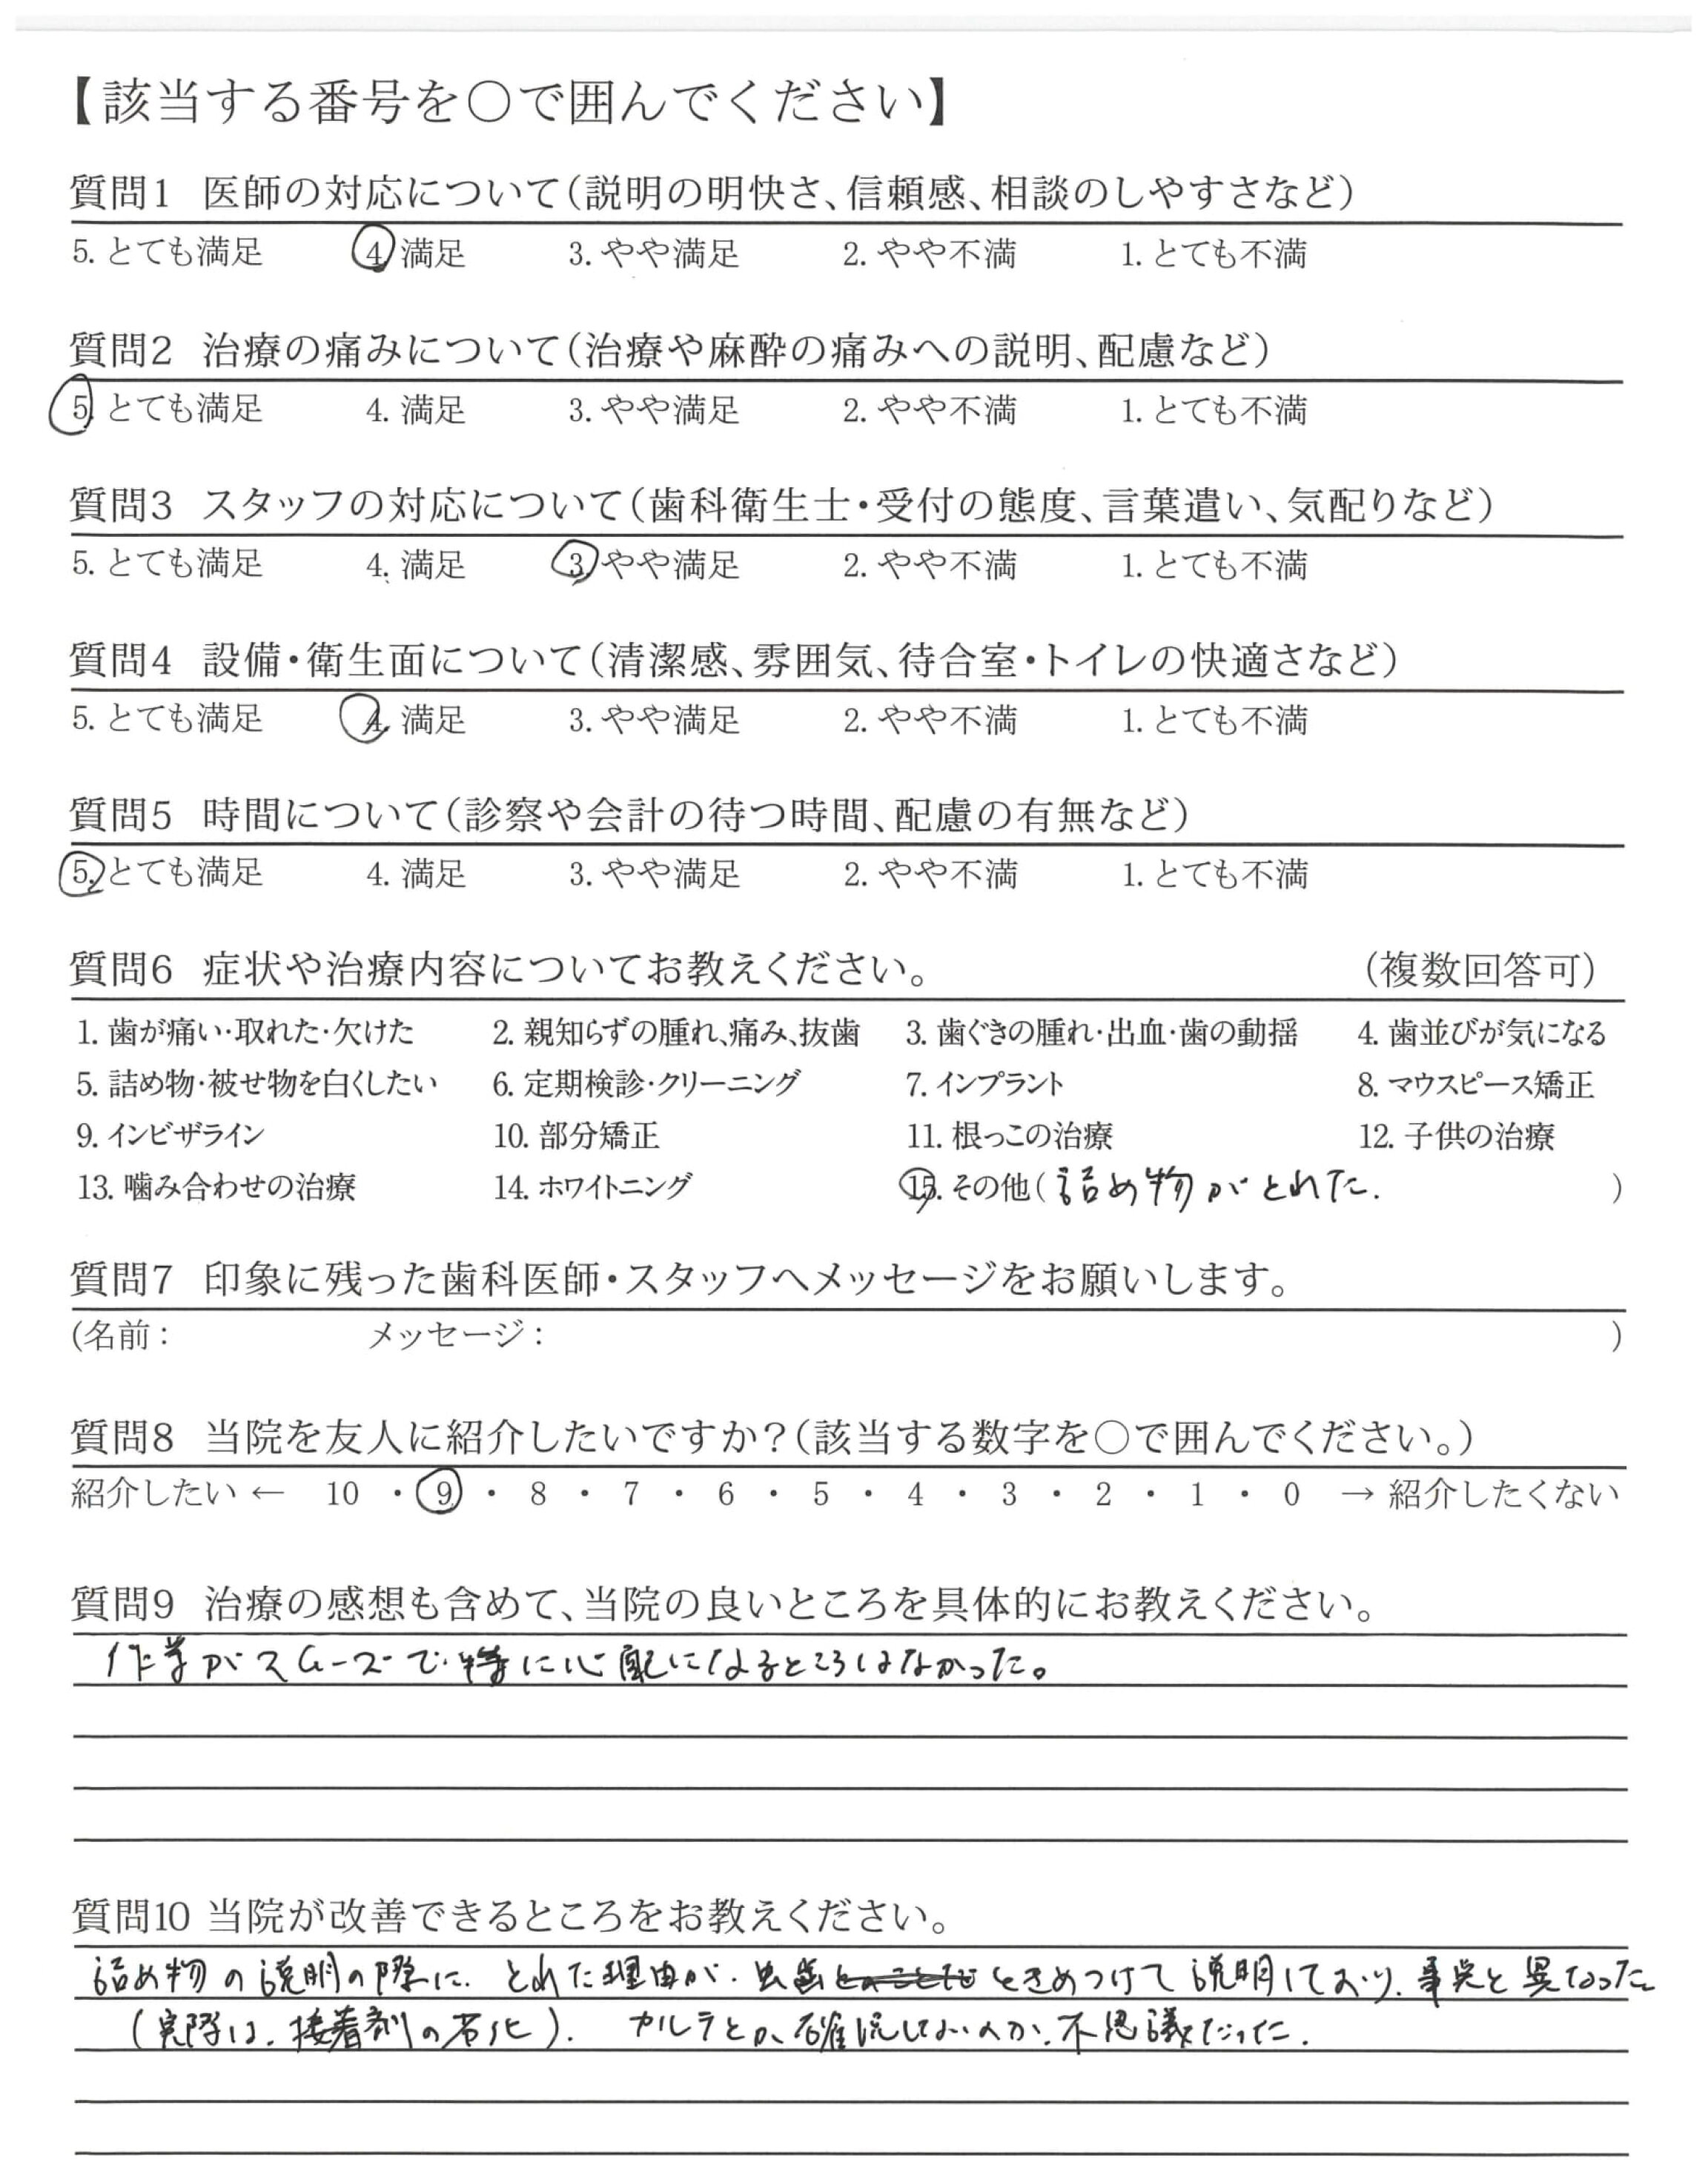 【該当する番号を○で囲んでください】
質問1 医師の対応について(説明の明快さ、信頼感、相談のしやすさなど)
5. とても満足 4. 満足 3. やや満足 2. やや不満 1. とても不満
質問2 治療の痛みについて(治療や麻酔の痛みへの説明、配慮など)
5. とても満足 4. 満足 3. やや満足 2. やや不満 1. とても不満
質問3 スタッフの対応について(歯科衛生士・受付の態度、言葉遣い、気配りなど)
5. とても満足 4. 満足 3. やや満足 2. やや不満 1. とても不満
質問4 設備・衛生面について(清潔感、雰囲気、待合室・トイレの快適さなど)
5. とても満足 4. 満足 3. やや満足 2. やや不満 1. とても不満
質問5 時間について(診察や会計の待つ時間、配慮の有無など)
5. とても満足 4. 満足 3. やや満足 2. やや不満 1. とても不満
質問6 症状や治療内容についてお教えください。 (複数回答可)
1. 歯が痛い・取れた・欠けた 2. 親知らずの腫れ、痛み、抜歯 3. 歯ぐきの腫れ・出血・歯の動揺 4. 歯並びが気になる
5. 詰め物・被せ物を白くしたい 6. 定期検診・クリーニング 7. インプラント 8. マウスピース矯正
9. インビザライン 10. 部分矯正 11. 根っこの治療 12. 子供の治療
13. 噛み合わせの治療 14. ホワイトニング 15. その他(詰め物がとれた. )
質問7 印象に残った歯科医師・スタッフへメッセージをお願いします。
(名前: メッセージ: )
質問8 当院を友人に紹介したいですか?(該当する数字を○で囲んでください。)
紹介したい ← 10 ・ 9 ・ 8 ・ 7 ・ 6 ・ 5 ・ 4 ・ 3 ・ 2 ・ 1 ・ 0 → 紹介したくない
質問9 治療の感想も含めて、当院の良いところを具体的にお教えください。
作業がスムーズで特に心配になるところはなかった。
質問10 当院が改善できるところをお教えください。
詰め物の説明の際に、とれた理由が、虫歯ときめつけて説明しており、事実と異なった
(実際は、接着剤の劣化)、カルテとか確認しないのか、不思議だった.